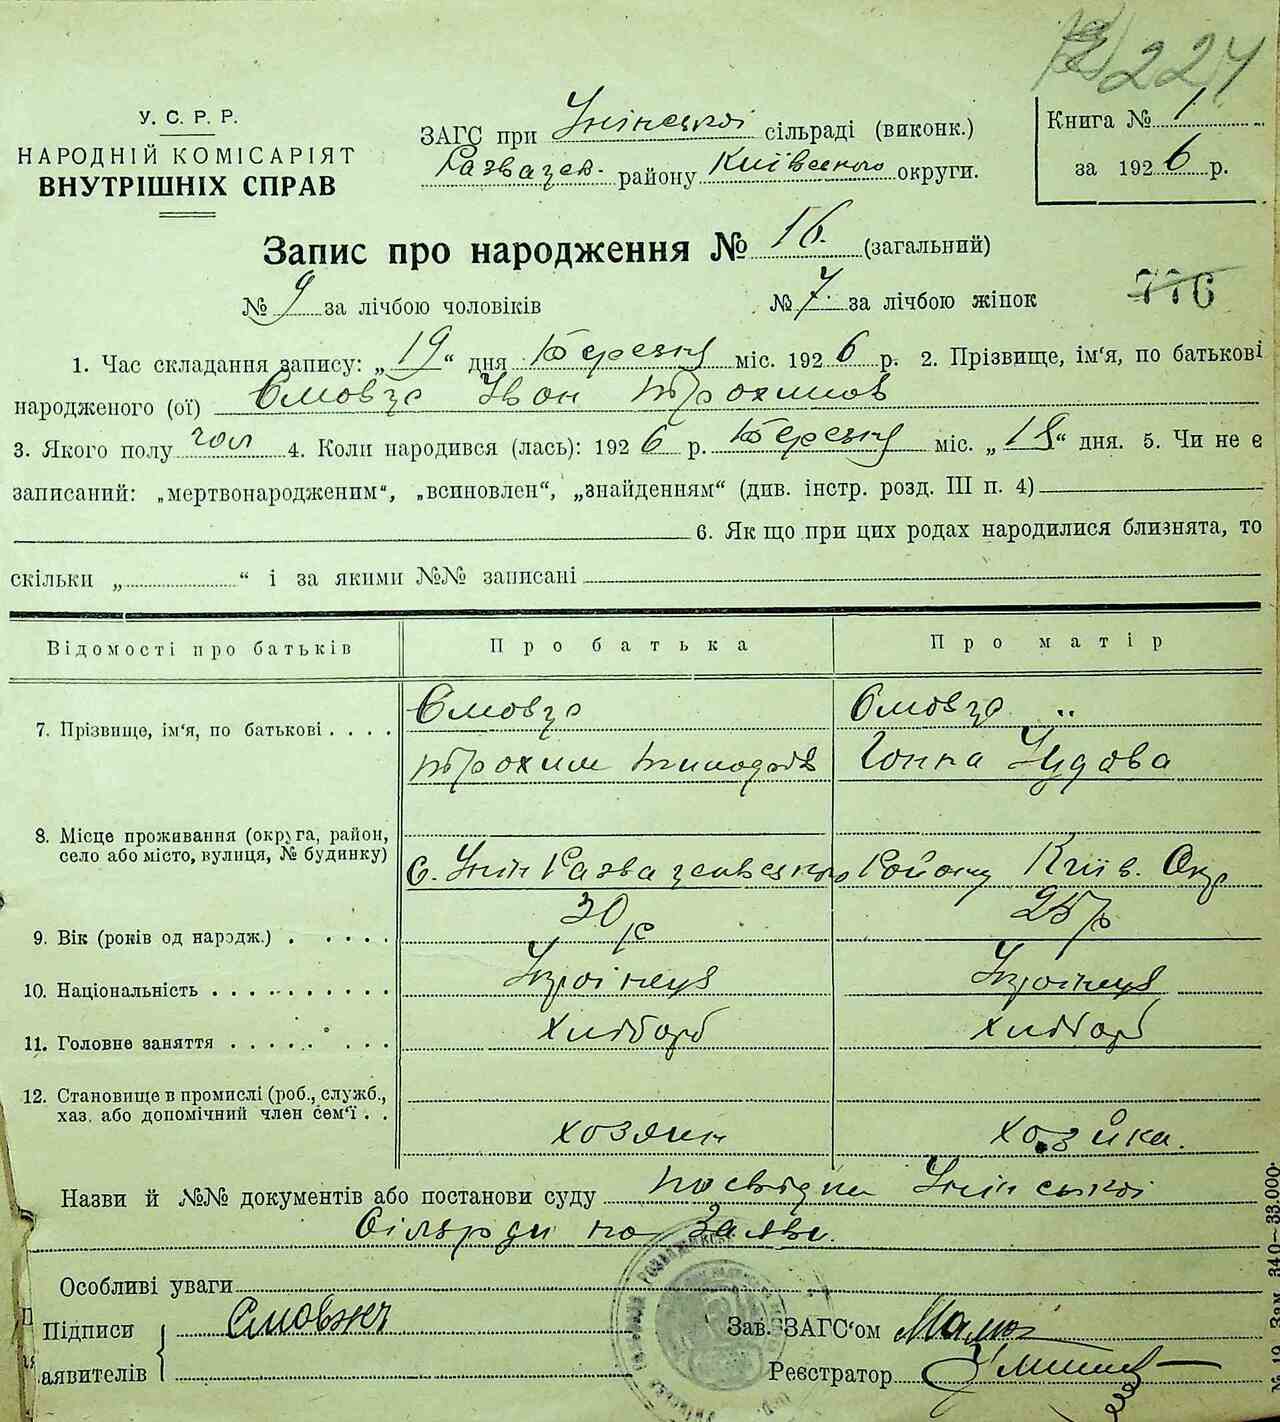 224
У. С. Р. Р.
НАРОДНІЙ КОМІСАРІЯТ
ВНУТРІШНІХ СПРАВ
ЗАГС при Унінської сільраді (виконк.)
Розважев. району Київського округи.
Книга № 1
за 1926 р.
Запис про народження № 16. (загальний)
№ 9 за лічбою чоловіків № 7. за лічбою жінок
776
1. Час складання запису: „19“ дня Березня міс. 1926 р. 2. Прізвище, ім‘я, по батькові
народженого (ої) Ємовза Іван Трохимов
3. Якого полу чол 4. Коли народився (лась): 1926 р. Березня міс. „18“ дня. 5. Чи не є
записаний: „мертвонародженим“, „всиновлен“, „знайденням“ (див. інстр. розд. III п. 4)
6. Як що при цих родах народилися близнята, то
скільки „ “ і за якими №№ записані
Відомості про батьків Про батька Про матір
7. Прізвище, ім‘я, по батькові Трохим Ганна
8. Місце проживання (округа, район,
село або місто, вулиця, № будинку) С. Унін Розважевського Району Київ. Окр
9. Вік (років од народж.) 30 р 25 р
10. Національність Українець Українець
11. Головне заняття хлібороб хлібороб
12. Становище в промислі (роб., служб.,
хаз. або допомічний член сем‘ї хозяин хозяйка.
Назви й №№ документів або постанови суду посвідка Унінської
Сільради по заяві.
Особливі уваги
Підписи
аявителів
Зав. ЗАГС‘ом
Реєстратор
№ 19. Зам. 340—33.000.